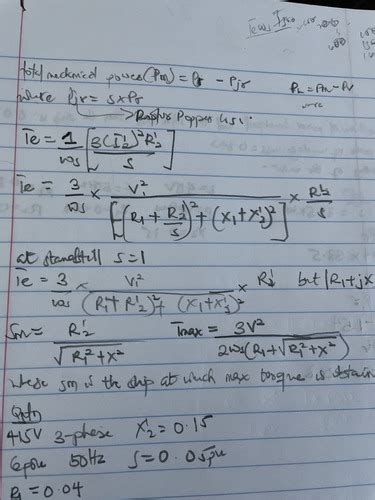 total mechanical power (Pm) = Pg - Pjr
where Pjr = s x Pg
Te = 1/ωs [3(I2')² R2' / s]
Te = 3/ωs x V1² / [(R1 + R2'/s)² + (X1 + X2')²] x R2'/s
at standstill s = 1
Te = 3/ωs x V1² / (R1 + R2')² + (X1 + X2')² x R2' but |R1 + jx
Sm = R2' / √R1² + X² Tmax = 3V² / 2ωs(R1 + √R1² + X²)
where sm is the slip at which max torque is obtain
415V 3-phase X2' = 0.15
6pole 50Hz S = 0.05pu
R1 = 0.04